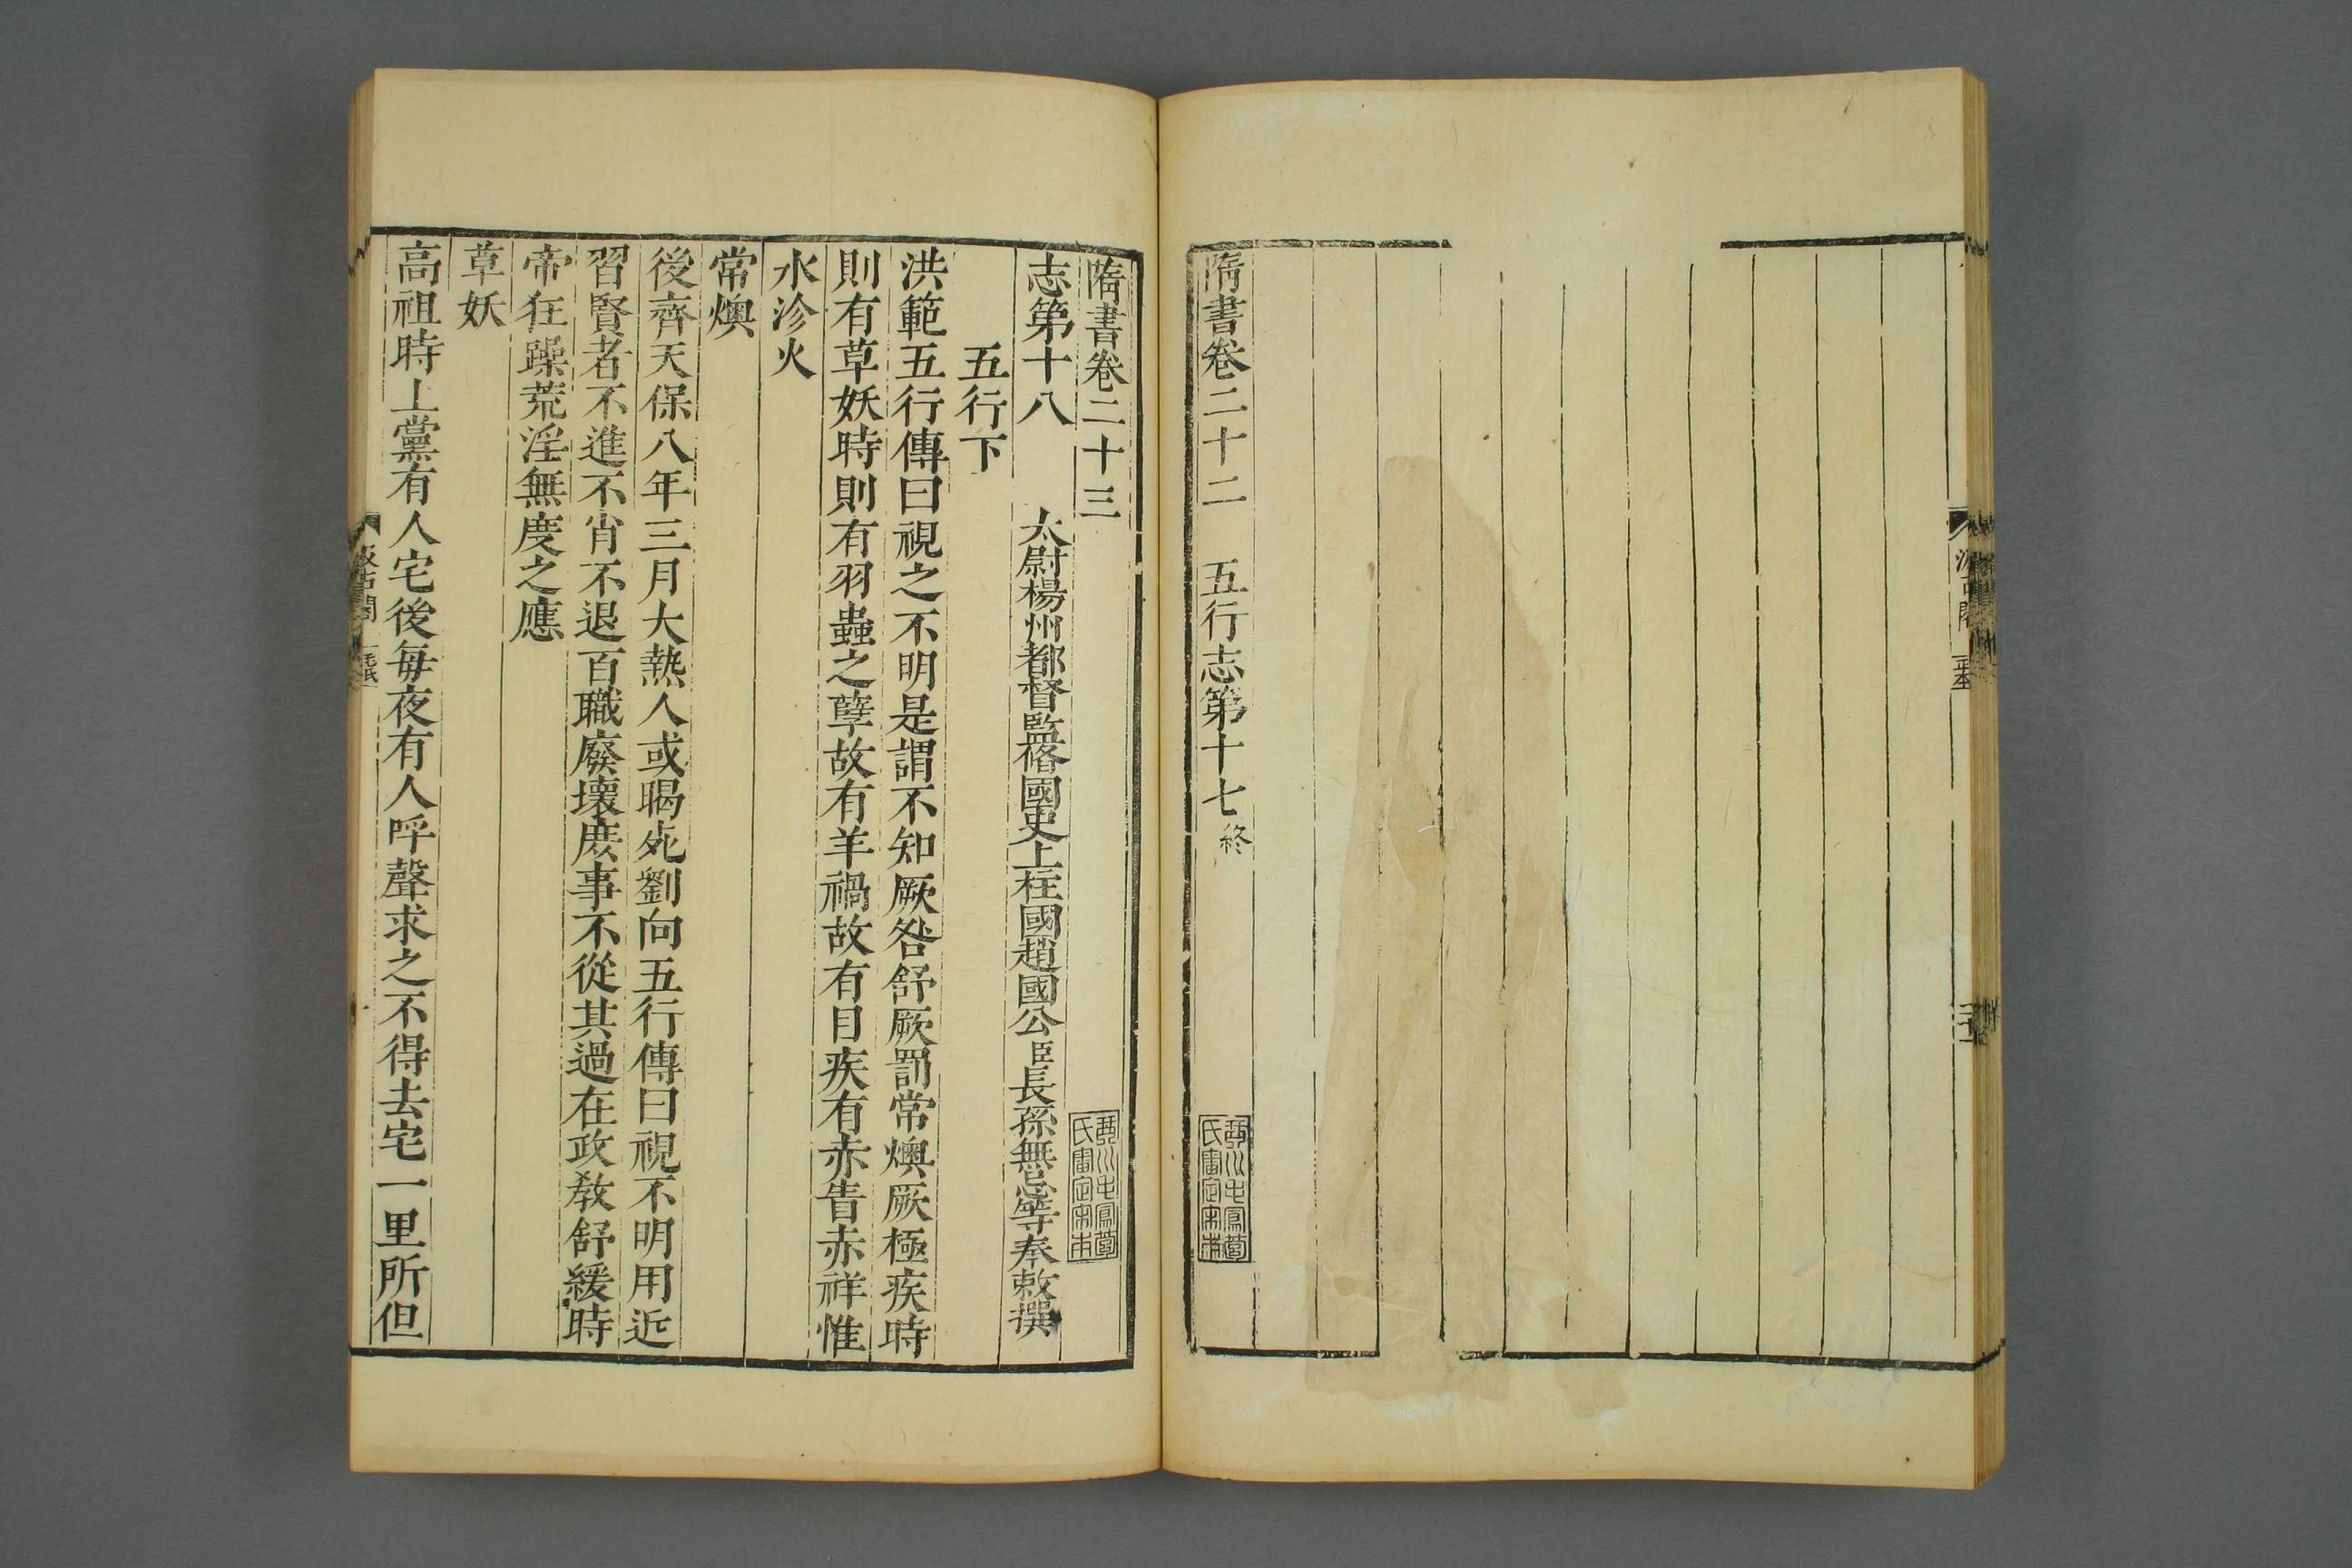 隋書卷二十二　五行志第十七終
隋書卷二十三
志第十八　太尉楊州都督監修國史上柱國趙國公臣長孫無忌等奉敕撰
五行下
洪範五行傳曰視之不明是謂不知厥咎舒厥罰常燠厥極疾時
則有草妖時則有羽蟲之孽故有羊禍故有目疾有赤眚赤祥惟
水沴火
常燠
後齊天保八年三月大熱人或暍死劉向五行傳曰視不明用近
習賢者不進不肖不退百職廢壞庶事不從其過在政教舒緩時
帝狂躁荒淫無度之應
草妖
高祖時上黨有人宅後每夜有人呼聲求之不得去宅一里所但
汲古閣
毛氏